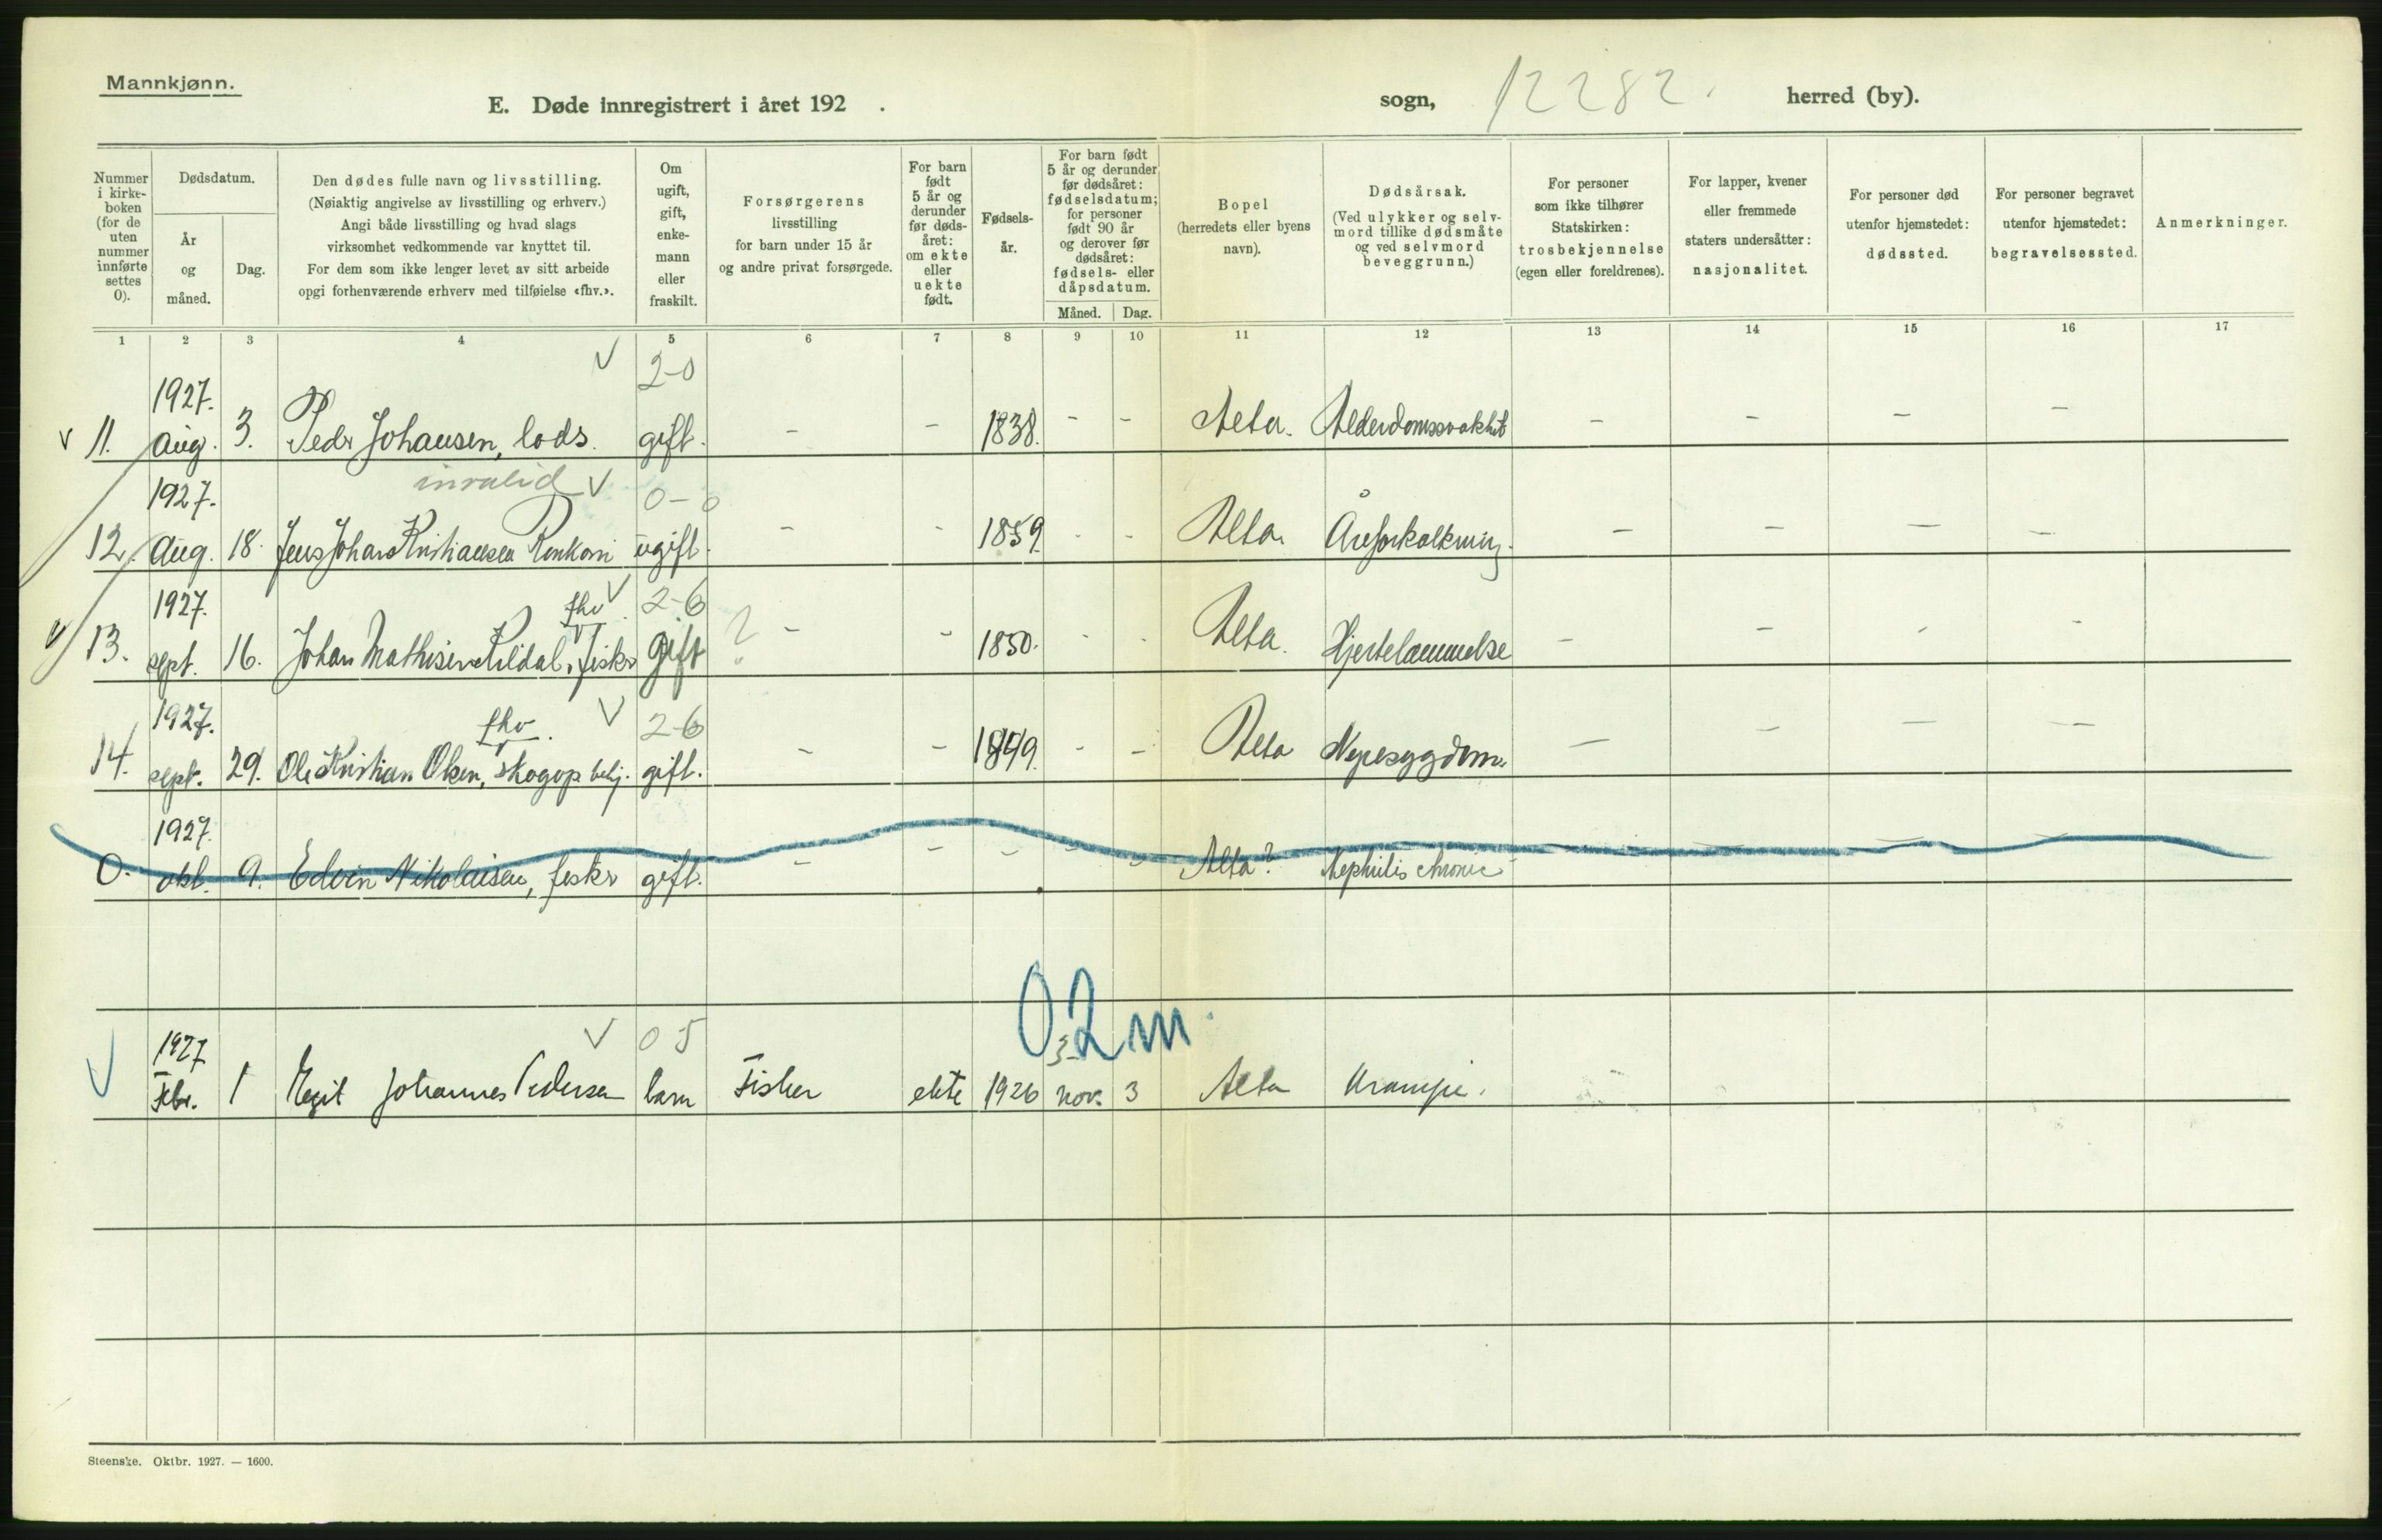 Mannkjønn.
E. Døde innregistrert i året 192 .
sogn, 12282. herred (by).
Nummer i kirke- boken (for de uten nummer innførte settes 0).
Dødsdatum.
År og måned.
Dag.
Den dødes fulle navn og livsstilling.
(Nøiaktig angivelse av livsstilling og erhverv.)
Angi både livsstilling og hvad slags
virksomhet vedkommende var knyttet til.
For dem som ikke lenger levet av sitt arbeide
opgi forhenværende erhverv med tilføielse «fhv.».
Om ugift, gift, enke- mann eller fraskilt.
Forsørgerens
livsstilling
for barn under 15 år
og andre privat forsørgede.
For barn født 5 år og derunder før døds- året: om ekte eller uekte født.
Fødsels- år.
For barn født 5 år og derunder før dødsåret: fødselsdatum; for personer født 90 år og derover før dødsåret: fødsels- eller dåpsdatum.
Måned. Dag.
Bopel
(herredets eller byens
navn).
Dødsårsak.
(Ved ulykker og selv-
mord tillike dødsmåte
og ved selvmord
beveggrunn.)
For personer
som ikke tilhører
Statskirken:
trosbekjennelse
(egen eller foreldrenes).
For lapper, kvener
eller fremmede
staters undersåtter:
nasjonalitet.
For personer død
utenfor hjemstedet:
dødssted.
For personer begravet
utenfor hjemstedet:
begravelsessted.
Anmerkninger.
1 2 3 4 5 6 7 8 9 10 11 12 13 14 15 16 17
1927. 2-0
11. Aug. 3. Peder Johansen, lods. gift. - - 1838. - - Alta. Alderdomssvakhet - - - -
invalid
1927. 0-0
12. Aug. 18. Jens Johan Kristiansen ugift. - - 1859. - - Alta. Åreforkalkning. - - - -
1927. fhv. 2-6 ?
13. sept. 16. Johan Mathisen fisker gift - - 1850. - - Alta. Hjertelammelse - - - -
1927. fhv. 2-6
14. sept. 29. Ole Kristian Olsen, skogopbetj. gift. - - 1849. - - Alta Nyresygdom. - - - -
1927.
0. okt. 9. Edvin Nikolaisen, fisker gift. - - - - - Alta? Nephritis chronic - - -
02m.
1927 0 5 3
Febr. 1 Johannes Pedersen barn Fisker ekte 1926 nov. 3 Alta Krampe. -
Steenske. Oktbr. 1927. — 1600.